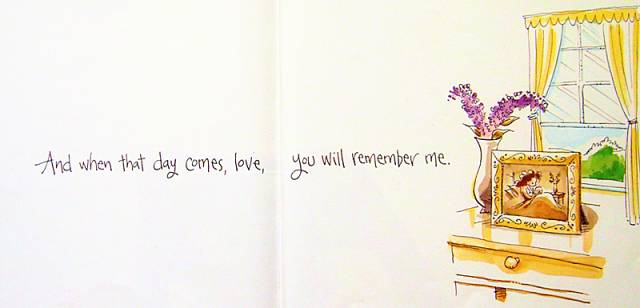 And when that day comes, love, you will remember me.